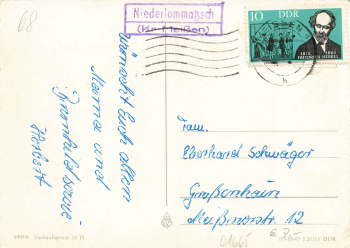 68
Niederlommatzsch
(Kr. Meißen)
10 DDR
1813 1863
FRIEDRICH HEBBEL
wünscht Euch allen
Mama und
sowie
Herbert
Fam.
Eberhard Schwäger
Großenhain
Meißnerstr. 12
Verkaufspreis 20 Pf.
DDR